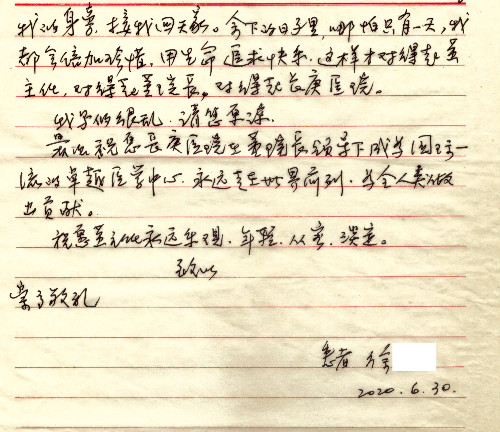 我的身旁，接我回天家。余下的日子里，哪怕只有一天，我
都会倍加珍惜，用生命追求快乐，这样才对得起董
主任，对得起董院长，对得起长庚医院。
我写的很乱，请您原谅。
最后祝愿长庚医院在董院长领导下成为国际一
流的卓越医学中心，永远走在世界前列，为全人类做
出贡献。
祝愿董主任永远乐观、年轻、从容、淡定。
致以
崇高敬礼
患者 徐
2020.6.30.